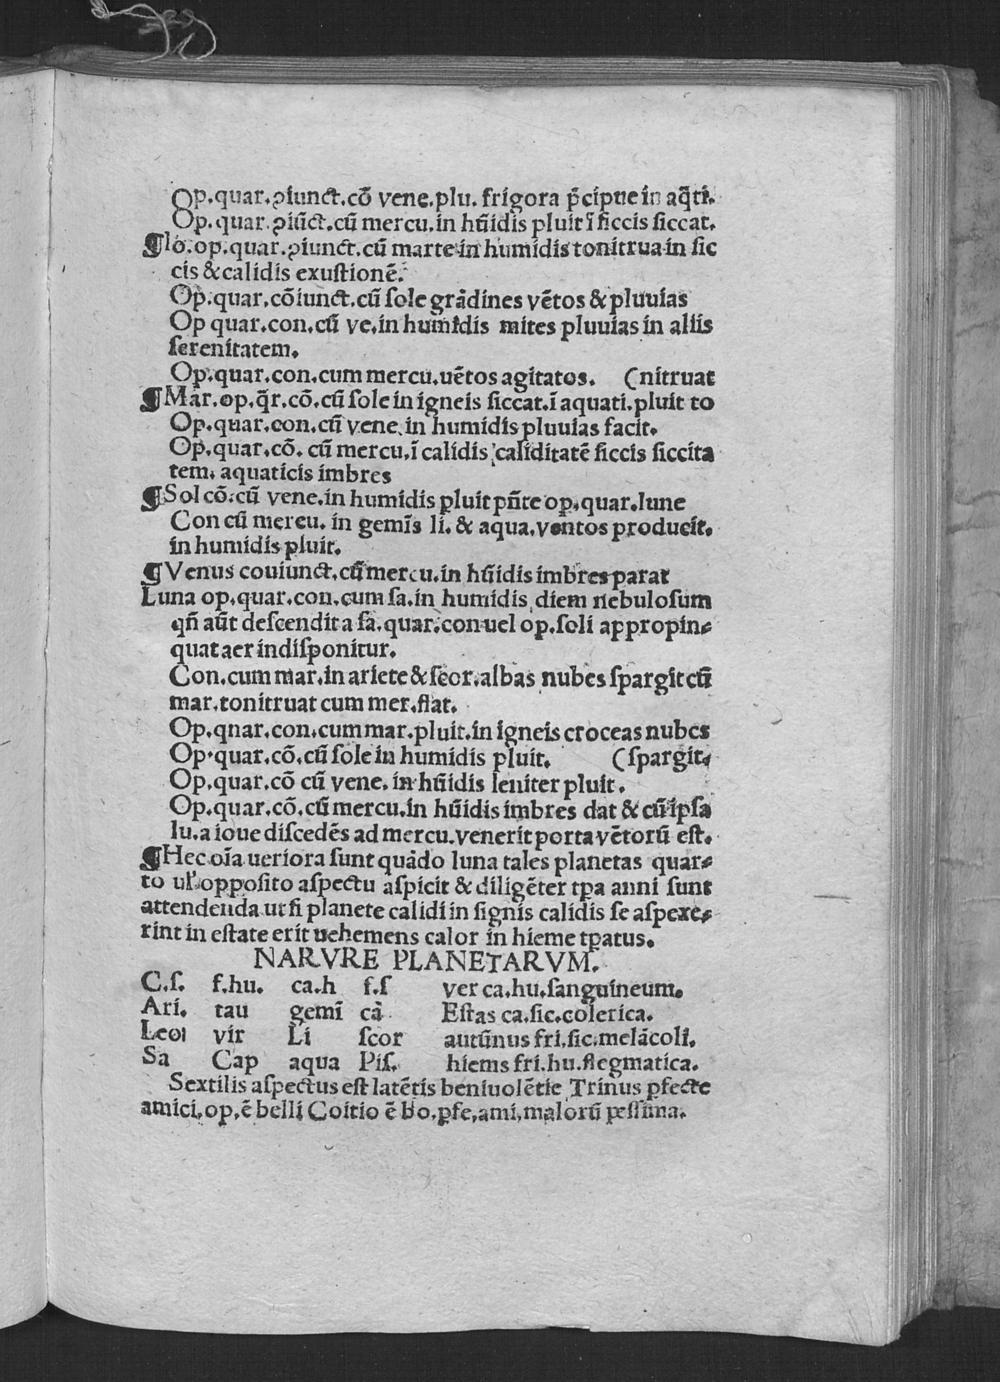 Op.quar.ꝯiunct.cō vene.plu. frigora p̄cipue in aq̄ti.
Op.quar.ꝯiūct.cū mercu.in hūidis pluit ī ſiccis ſiccat.
¶Io.op.quar.ꝯiunct.cū marte in humidis tonitrua in ſic
cis & calidis exuſtionē.
Op.quar.cōiunct.cū ſole grādines vētos & pluuias
Op quar.con.cū ve.in humidis mites pluuias in aliis
ſerenitatem.
Op.quar.con.cum mercu.uētos agitatos. (nitruat
¶Mar.op.q̄r.cō.cū ſole in igneis ſiccat.ī aquati.pluit to
Op.quar.con.cū vene.in humidis pluuias facit.
Op.quar.cō. cū mercu.ī calidis caliditatē ſiccis ſiccita
tem. aquaticis imbres
¶Sol cō.cū vene.in humidis pluit pn̄te op.quar.lune
Con cū mercu. in gemīs li. & aqua.ventos producit.
in humidis pluit.
¶Venus couiunct.cū mercu.in hūidis imbres parat
Luna op.quar.con.cum ſa.in humidis diem nebuloſum
qn̄ aūt deſcendit a ſa.quar.con uel op.ſoli appropin⸗
quat aer indiſponitur.
Con.cum mar.in ariete & ſcor.albas nubes ſpargit cū
mar.tonitruat cum mer.flat.
Op.qnar.con.cum mar.pluit.in igneis croceas nubes
Op.quar.cō.cū ſole in humidis pluit. (ſpargit.
Op.quar.cō cū vene.in hūidis leniter pluit.
Op.quar.cō.cū mercu.in hūidis imbres dat & cū ipſa
lu.a ioue diſcedēs ad mercu.venerit porta vētorū eſt.
¶Hec oīa ueriora ſunt quādo luna tales planetas quar⸗
to ul̓ oppoſito aſpectu aſpicit & diligēter tꝑa anni ſunt
attendenda ut ſi planete calidi in ſignis calidis ſe aſpexe⸗
rint in eſtate erit uehemens calor in hieme tꝑatus.
NARVRE PLANETARVM.
C.ſ. f.hu. ca.h f.ſ ver ca.hu.ſanguineum.
Ari. tau gemī cā Eſtas ca.ſic.colerica.
Leo vir Li ſcor autūnus fri.ſic.melācoli.
Sa Cap aqua Piſ. hiems fri.hu.flegmatica.
Sextilis aſpectus eſt latētis beniuolētie Trinus ꝑfecte
amici.op.ē belli Coitio ē bo.ꝑfe.ami.malorū peſſima.